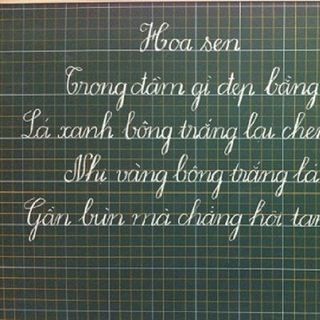 Hoa sen
Trong đầm gì đẹp bằng
Lá xanh bông trắng lại
Nhị vàng bông trắng lá
Gần bùn mà chẳng hôi